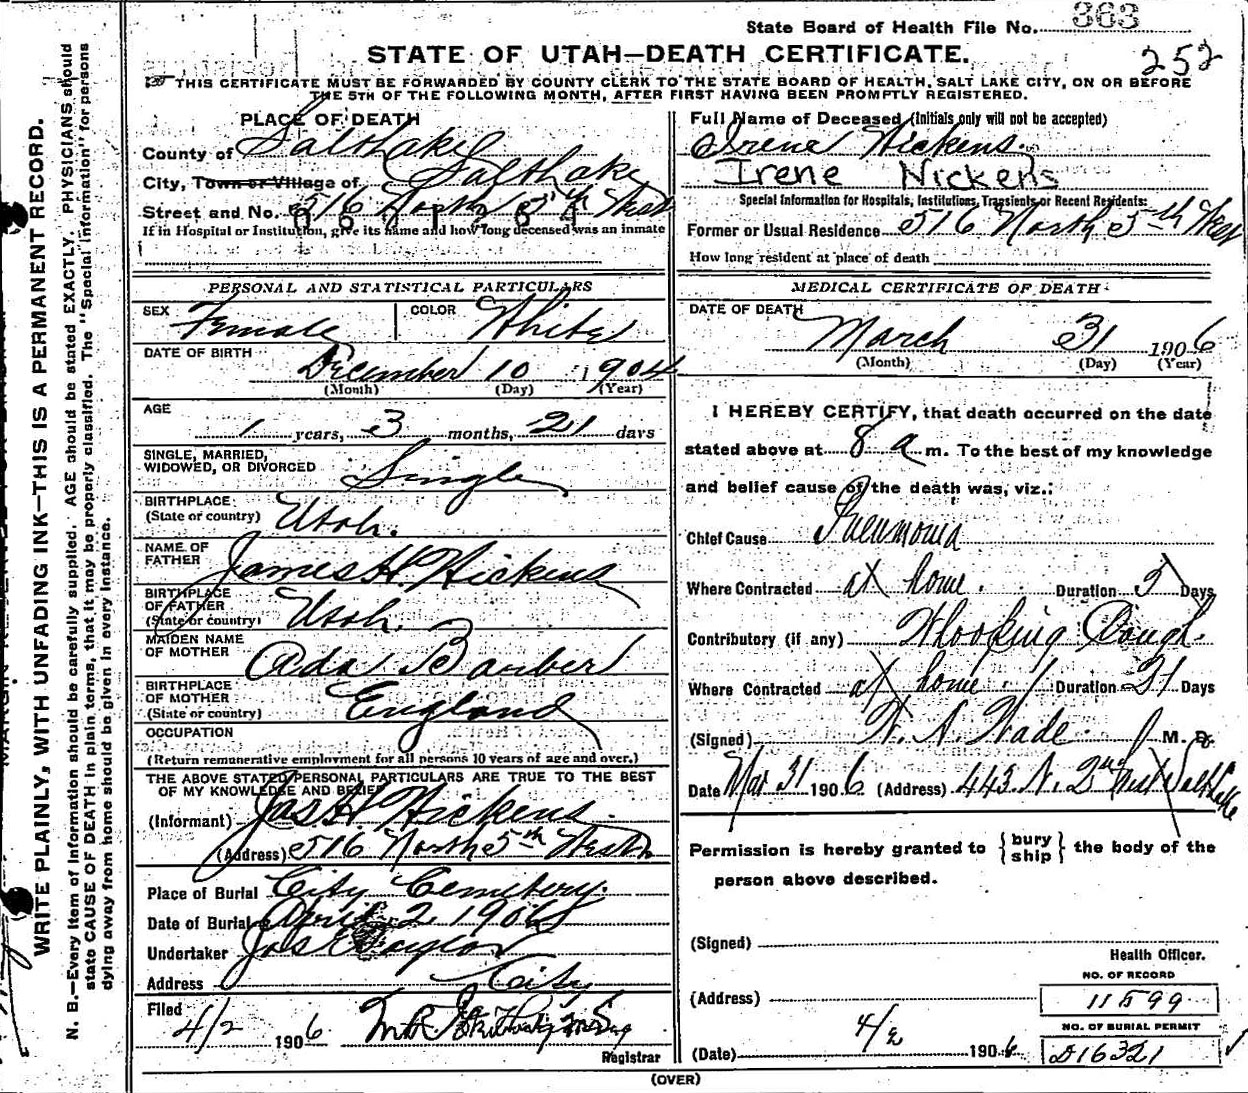 State Board of Health File No. 363
STATE OF UTAH—DEATH CERTIFICATE.
252
THIS CERTIFICATE MUST BE FORWARDED BY COUNTY CLERK TO THE STATE BOARD OF HEALTH, SALT LAKE CITY, ON OR BEFORE
THE 5TH OF THE FOLLOWING MONTH, AFTER FIRST HAVING BEEN PROMPTLY REGISTERED.
WRITE PLAINLY, WITH UNFADING INK—THIS IS A PERMANENT RECORD.
N. B.—Every item of Information should be carefully supplied. AGE should be stated EXACTLY. PHYSICIANS should
state CAUSE OF DEATH in plain terms, that it may be properly classified. The "Special Information" for persons
dying away from home should be given in every instance.
PLACE OF DEATH
County of Salt Lake
City, Town or Village of Salt Lake
Street and No. 516 North 5th West
If in Hospital or Institution, give its name and how long deceased was an inmate
PERSONAL AND STATISTICAL PARTICULARS
SEX Female COLOR White
DATE OF BIRTH
December 10 1904
(Month) (Day) (Year)
AGE
1 years, 3 months, 21 days
SINGLE, MARRIED,
WIDOWED, OR DIVORCED Single
BIRTHPLACE
(State or country) Utah.
NAME OF
FATHER James H. Nickens
BIRTHPLACE
OF FATHER
(State or country) Utah.
MAIDEN NAME
OF MOTHER Ada Barber
BIRTHPLACE
OF MOTHER
(State or country) England
OCCUPATION
(Return remunerative employment for all persons 10 years of age and over.)
THE ABOVE STATED PERSONAL PARTICULARS ARE TRUE TO THE BEST
OF MY KNOWLEDGE AND BELIEF
(Informant) Jas H Nickens
(Address) 516 North 5th West
Place of Burial City Cemetery.
Date of Burial April 2 1906
Undertaker Jos E Taylor
Address City
Filed
4/2 1906
Registrar
Full Name of Deceased (Initials only will not be accepted)
Irene Nickens.
Irene Nickens
Special Information for Hospitals, Institutions, Transients or Recent Residents:
Former or Usual Residence 516 North 5th West
How long resident at place of death
MEDICAL CERTIFICATE OF DEATH
DATE OF DEATH
March 31 1906
(Month) (Day) (Year)
I HEREBY CERTIFY, that death occurred on the date
stated above at 8 a m. To the best of my knowledge
and belief cause of the death was, viz.:
Chief Cause Pneumonia
Where Contracted at home. Duration Days
Contributory (if any) Whooping Cough.
Where Contracted at home. Duration 21 Days
(Signed) Wade M. D.
Date Mar 31 1906 (Address) 443 N. 2nd West Salt Lake
Permission is hereby granted to {bury ship} the body of the
person above described.
(Signed)
Health Officer.
NO. OF RECORD
(Address) 11599
NO. OF BURIAL PERMIT
(Date) 4/2 1906 D16321
(OVER)